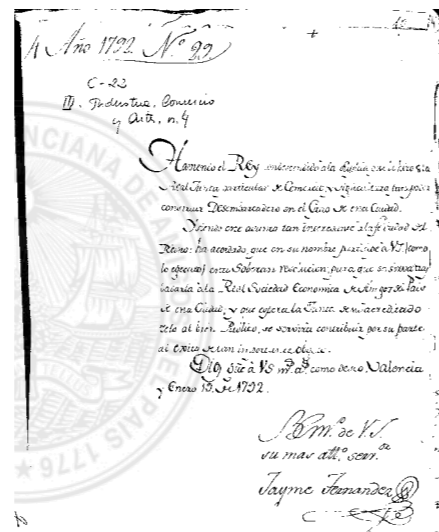 4 Año 1792 Nº 22
C-22
III. Industria, Comercio
y Arte, n. 4
el Rey la
Real Junta particular de Comercio, y Agricultura
construir Desembarcadero en el Grao de esta Ciudad.
Y siendo este asunto tan interesante a la felicidad del
Reyno: ha acordado, que en su nombre participe à V.S. (como
lo ejecuto) esta Soberana resolucion, para que se sirva
la Real Sociedad Economica de Amigos del Pais
de esta Ciudad, y que espera la Junta de su acreditado
zelo al bien Publico, se servirà contribuir por su parte
al exito de tan interesante objeto.
Dios gue à V.S. ms. as. como deseo Valencia
y Enero 15 de 1792.
B. L. M. de V.S.
su mas attº. servor
Jayme Fernandez
ENCIANA DE AMIGOS DEL PAIS * 1776 *